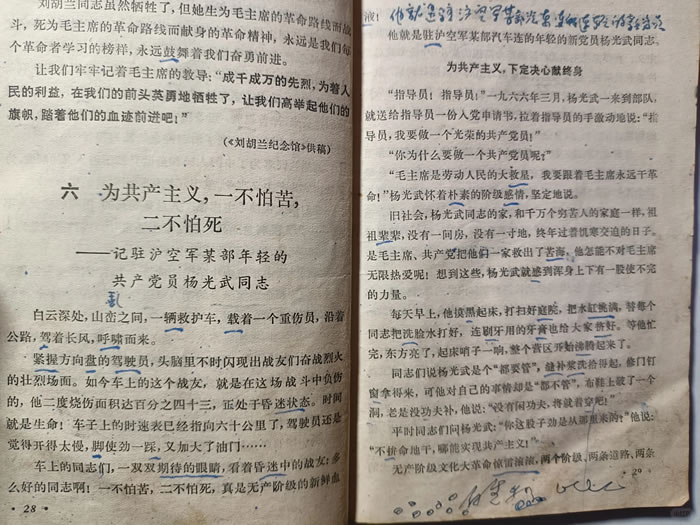 刘胡兰同志虽然牺牲了，但她生为毛主席的革命路线而战
斗，死为毛主席的革命路线而献身的革命精神，永远是我们每
个革命者学习的榜样，永远鼓舞着我们奋勇前进。
让我们牢牢记着毛主席的教导：“成千成万的先烈，为着人
民的利益，在我们的前头英勇地牺牲了，让我们高举起他们的
旗帜，踏着他们的血迹前进吧！”
（《刘胡兰纪念馆》供稿）
六 为共产主义，一不怕苦，
二不怕死
——记驻沪空军某部年轻的
共产党员杨光武同志
白云深处，山峦之间，一辆救护车，载着一个重伤员，沿着
公路，驾着长风，呼啸而来。
紧握方向盘的驾驶员，头脑里不时闪现出战友们奋战烈火
的壮烈场面。如今车上的这个战友，就是在这场战斗中负伤
的，他二度烧伤面积达百分之四十三，正处于昏迷状态。时间
就是生命！车子上的时速表已经指向六十公里了，驾驶员还是
觉得开得太慢，脚使劲一踩，又加大了油门……
车上的同志们，一双双期待的眼睛，看着昏迷中的战友：多
么好的同志啊！一不怕苦，二不怕死，真是无产阶级的新鲜血
· 28 ·
他就是驻沪空军某部汽车连的年轻的新党员
他就是驻沪空军某部汽车连的年轻的新党员杨光武同志。
为共产主义，下定决心献终身
“指导员！指导员！”一九六六年三月，杨光武一来到部队，
就送给指导员一份入党申请书，拉着指导员的手激动地说：“指
导员，我要做一个光荣的共产党员！”
“你为什么要做一个共产党员呢？”
“毛主席是劳动人民的大救星，我要跟着毛主席永远干革
命！”杨光武怀着朴素的阶级感情，坚定地说。
旧社会，杨光武同志的家，和千万个穷苦人的家庭一样，祖
祖辈辈，没有一间房，没有一寸地，终年过着饥寒交迫的日子。
是毛主席、共产党把他们一家救出了苦海，他怎能不对毛主席
无限热爱呢！想到这些，杨光武就感到浑身上下有一股使不完
的力量。
每天早上，他摸黑起床，打扫好庭院，把水缸挑满，替整个
同志把洗脸水打好，连刷牙用的牙膏也给大家挤好。等他忙
完，东方亮了，起床哨子一响，整个营区开始沸腾起来了。
同志们说杨光武是“都要管”，缝补浆洗拾得起，修门钉
窗拿得来，可他对自己的事情却是“都不管”，布鞋上破了一个
洞，老是没功夫补，他说：“没有闲功夫，将就着穿吧！”
平时同志们问杨光武：“你这股子劲是从那里来的？”他说：
“不拚命地干，哪能实现共产主义！”
无产阶级文化大革命惊雷滚滚，两个阶级、两条道路、两条
29